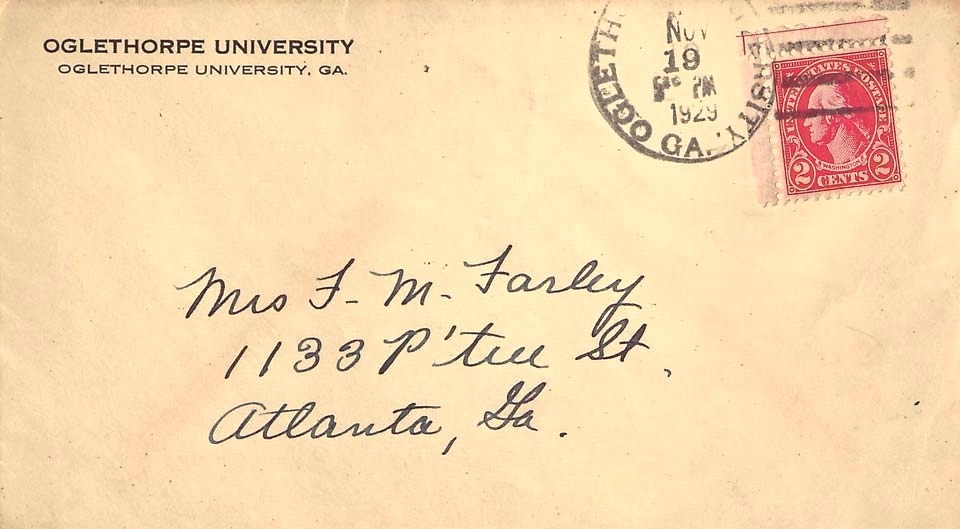 OGLETHORPE UNIVERSITY
OGLETHORPE UNIVERSITY, GA.
OGLETHORPE UNIVERSITY, GA.
NOV
19
PM
1929
UNITED STATES POSTAGE
WASHINGTON
2 CENTS 2
Mrs F. M. Farley
1133 P'tree St.
Atlanta, Ga.